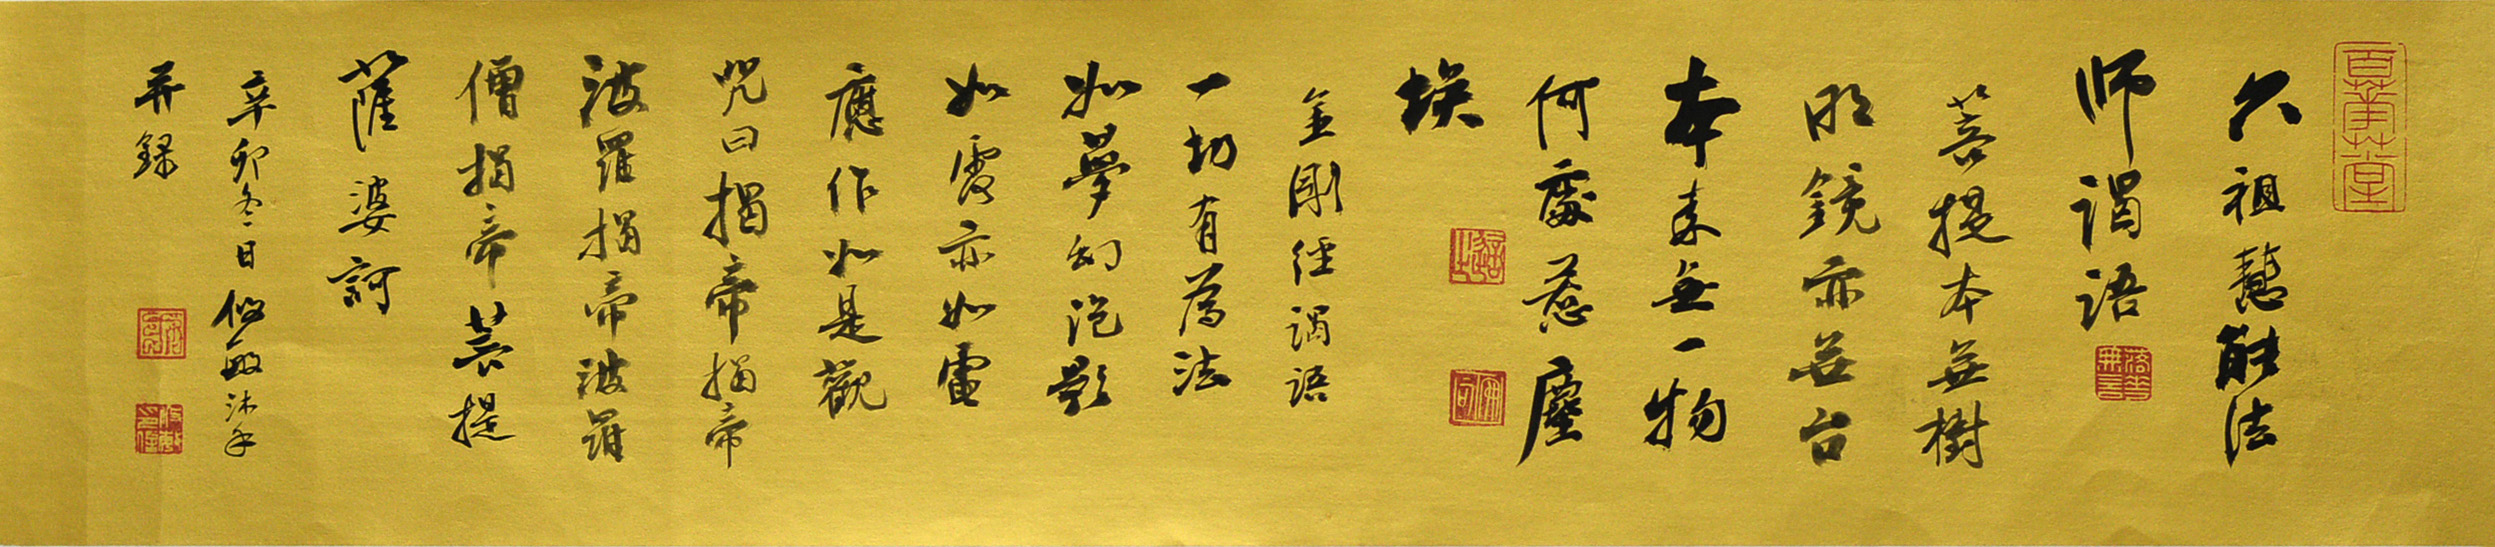 六祖慧能法
师谒语
菩提本無樹
明鏡亦無台
本来無一物
何處惹塵
埃
金剛经谒语
一切有為法
如夢幻泡影
如露亦如電
應作如是觀
咒曰揭帝揭帝
波羅揭帝波羅
僧揭帝菩提
薩婆訶
辛卯冬日敏沐手
并録